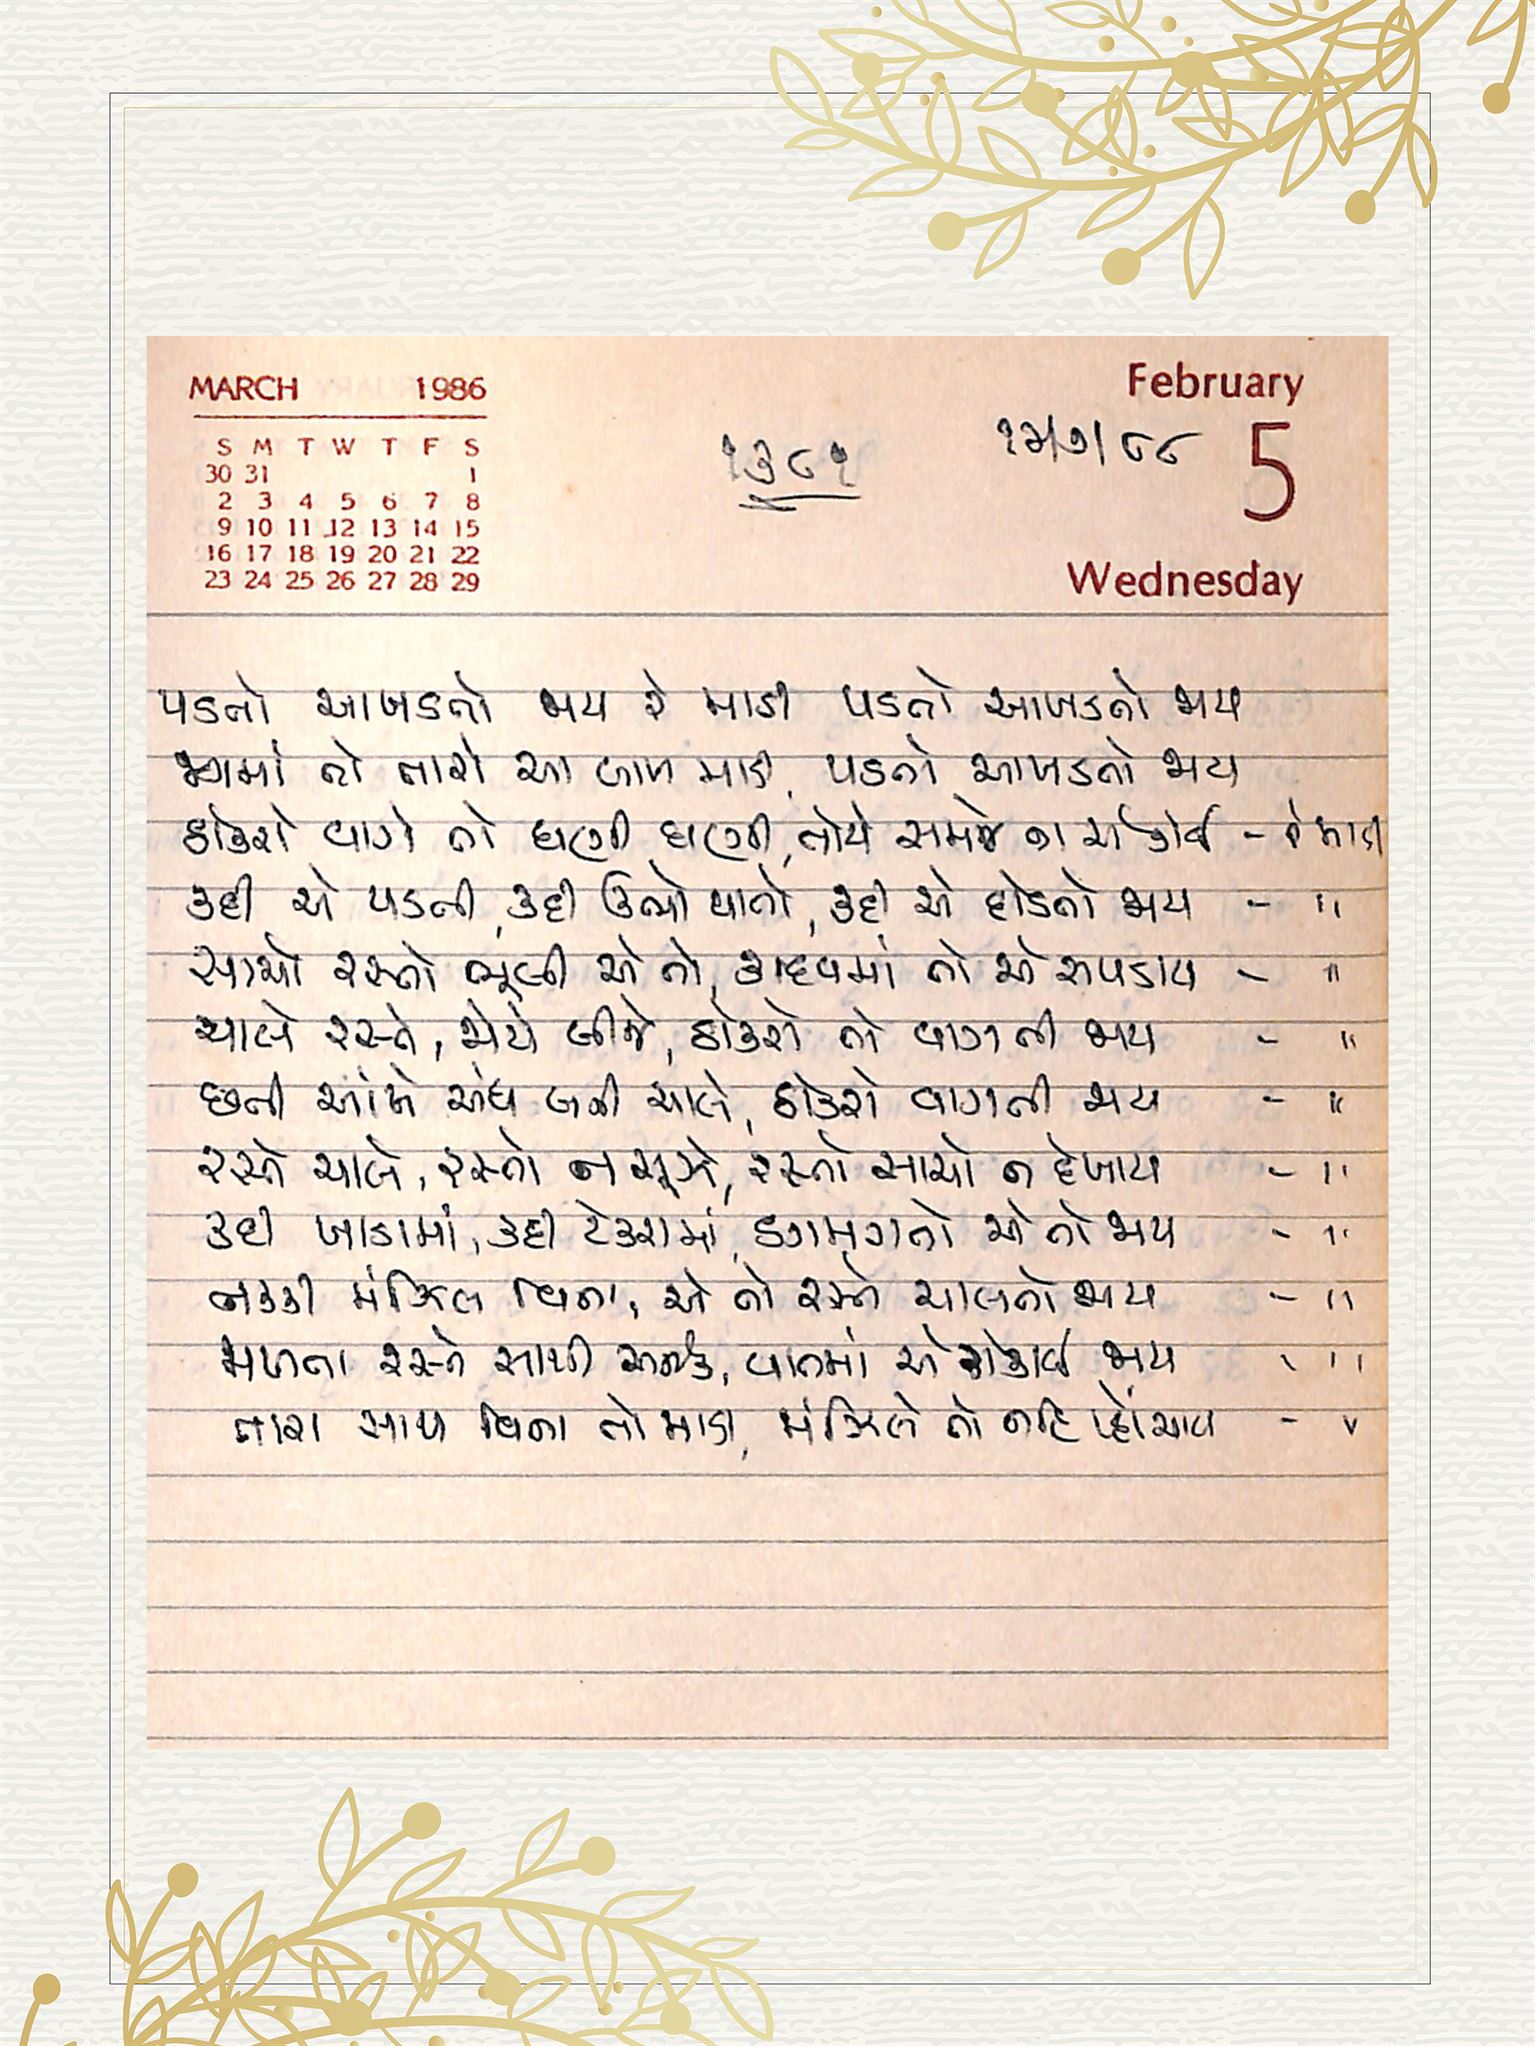 MARCH 1986
S M T W T F S
30 31 1
2 3 4 5 6 7 8
9 10 11 12 13 14 15
16 17 18 19 20 21 22
23 24 25 26 27 28 29
૧૩૮૧
February
5
Wednesday
પડતો આખડતો જાય રે માડી પડતો આખડતો જાય
જગમાં તો તારો આ બાળ માડી, પડતો આખડતો જાય
ઠોકરો વાગે તો ઘણી ઘણી, તોયે સમજે ના જરાયે - રે માડી
કદી એ પડતો, કદી ઊભો થાતો, કદી એ દોડતો જાય - "
સાચો રસ્તો ભૂલી એ તો, કાદવમાં તો એ ખરડાય - "
ચાલે રસ્તે, જોયે બીજે, ઠોકરો તો વાગતી જાય - "
છતી આંખે અંધ બની ચાલે, ઠોકરો વાગતી જાય - "
રસ્તે ચાલે, રસ્તો ન સૂઝે, રસ્તો સાચો ન દેખાય - "
કદી ખાડામાં, કદી ટેકરામાં, ડગમગતો એ તો જાય - "
નક્કી મંઝિલ વિના, એ તો રસ્તે ચાલતો જાય - "
મળતા રસ્તે સાથી અનેક, વાતમાં એ રોકાઈ જાય - "
તારા સાથ વિના તો માડી, મંઝિલે તો નહિ પહોંચાય - "